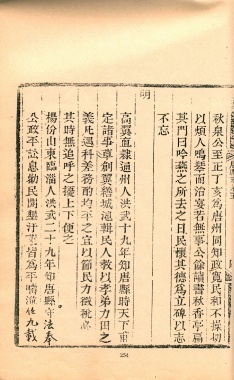 秋泉公至正丁亥為唐州同知政寬民和不操切
以煩人鳴琴而治宴若無事公餘讀書秋香亭扁
其門曰吟蘂之所去之日民懷其德為立碑以志
不忘
明
高翼直隷通州人洪武十九年知唐縣時天下甫
定諸事草創翼繕城池輯人民教以孝弟力田之
義凡遇科差務酌均平之宜以節民力徵稅
其時無追呼之擾上下便之
楊份山東臨淄人洪武二十九年知唐縣守法奉
公政平訟息勸民開墾汙萊皆為平疇涖任九載
254